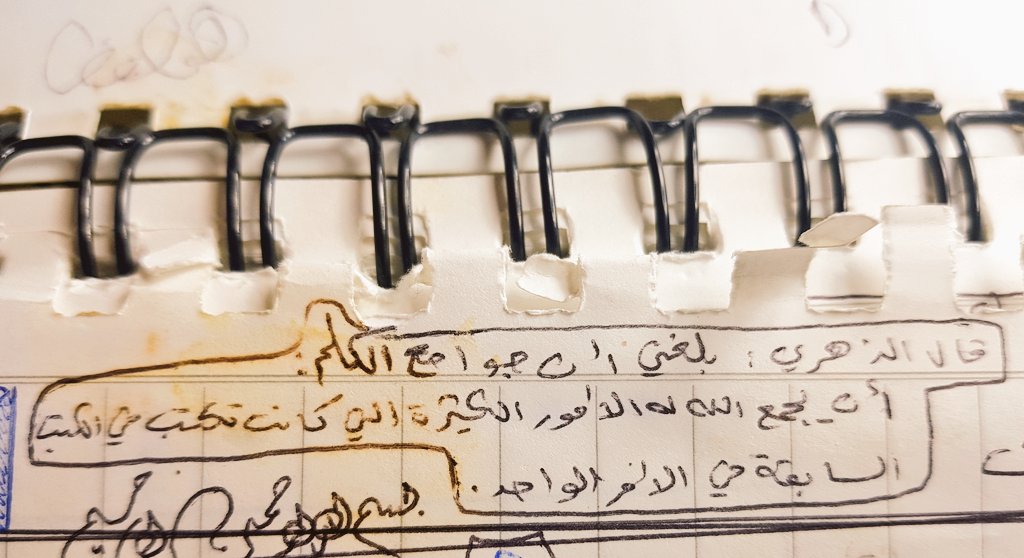 قال الزهري: بلغني أن جوامع الكلم:
أن يجمع الله له الأمور الكثيرة التي كانت تكتب في الكتب
السابقة في الأمر الواحد.
بسم الله الرحمن الرحيم